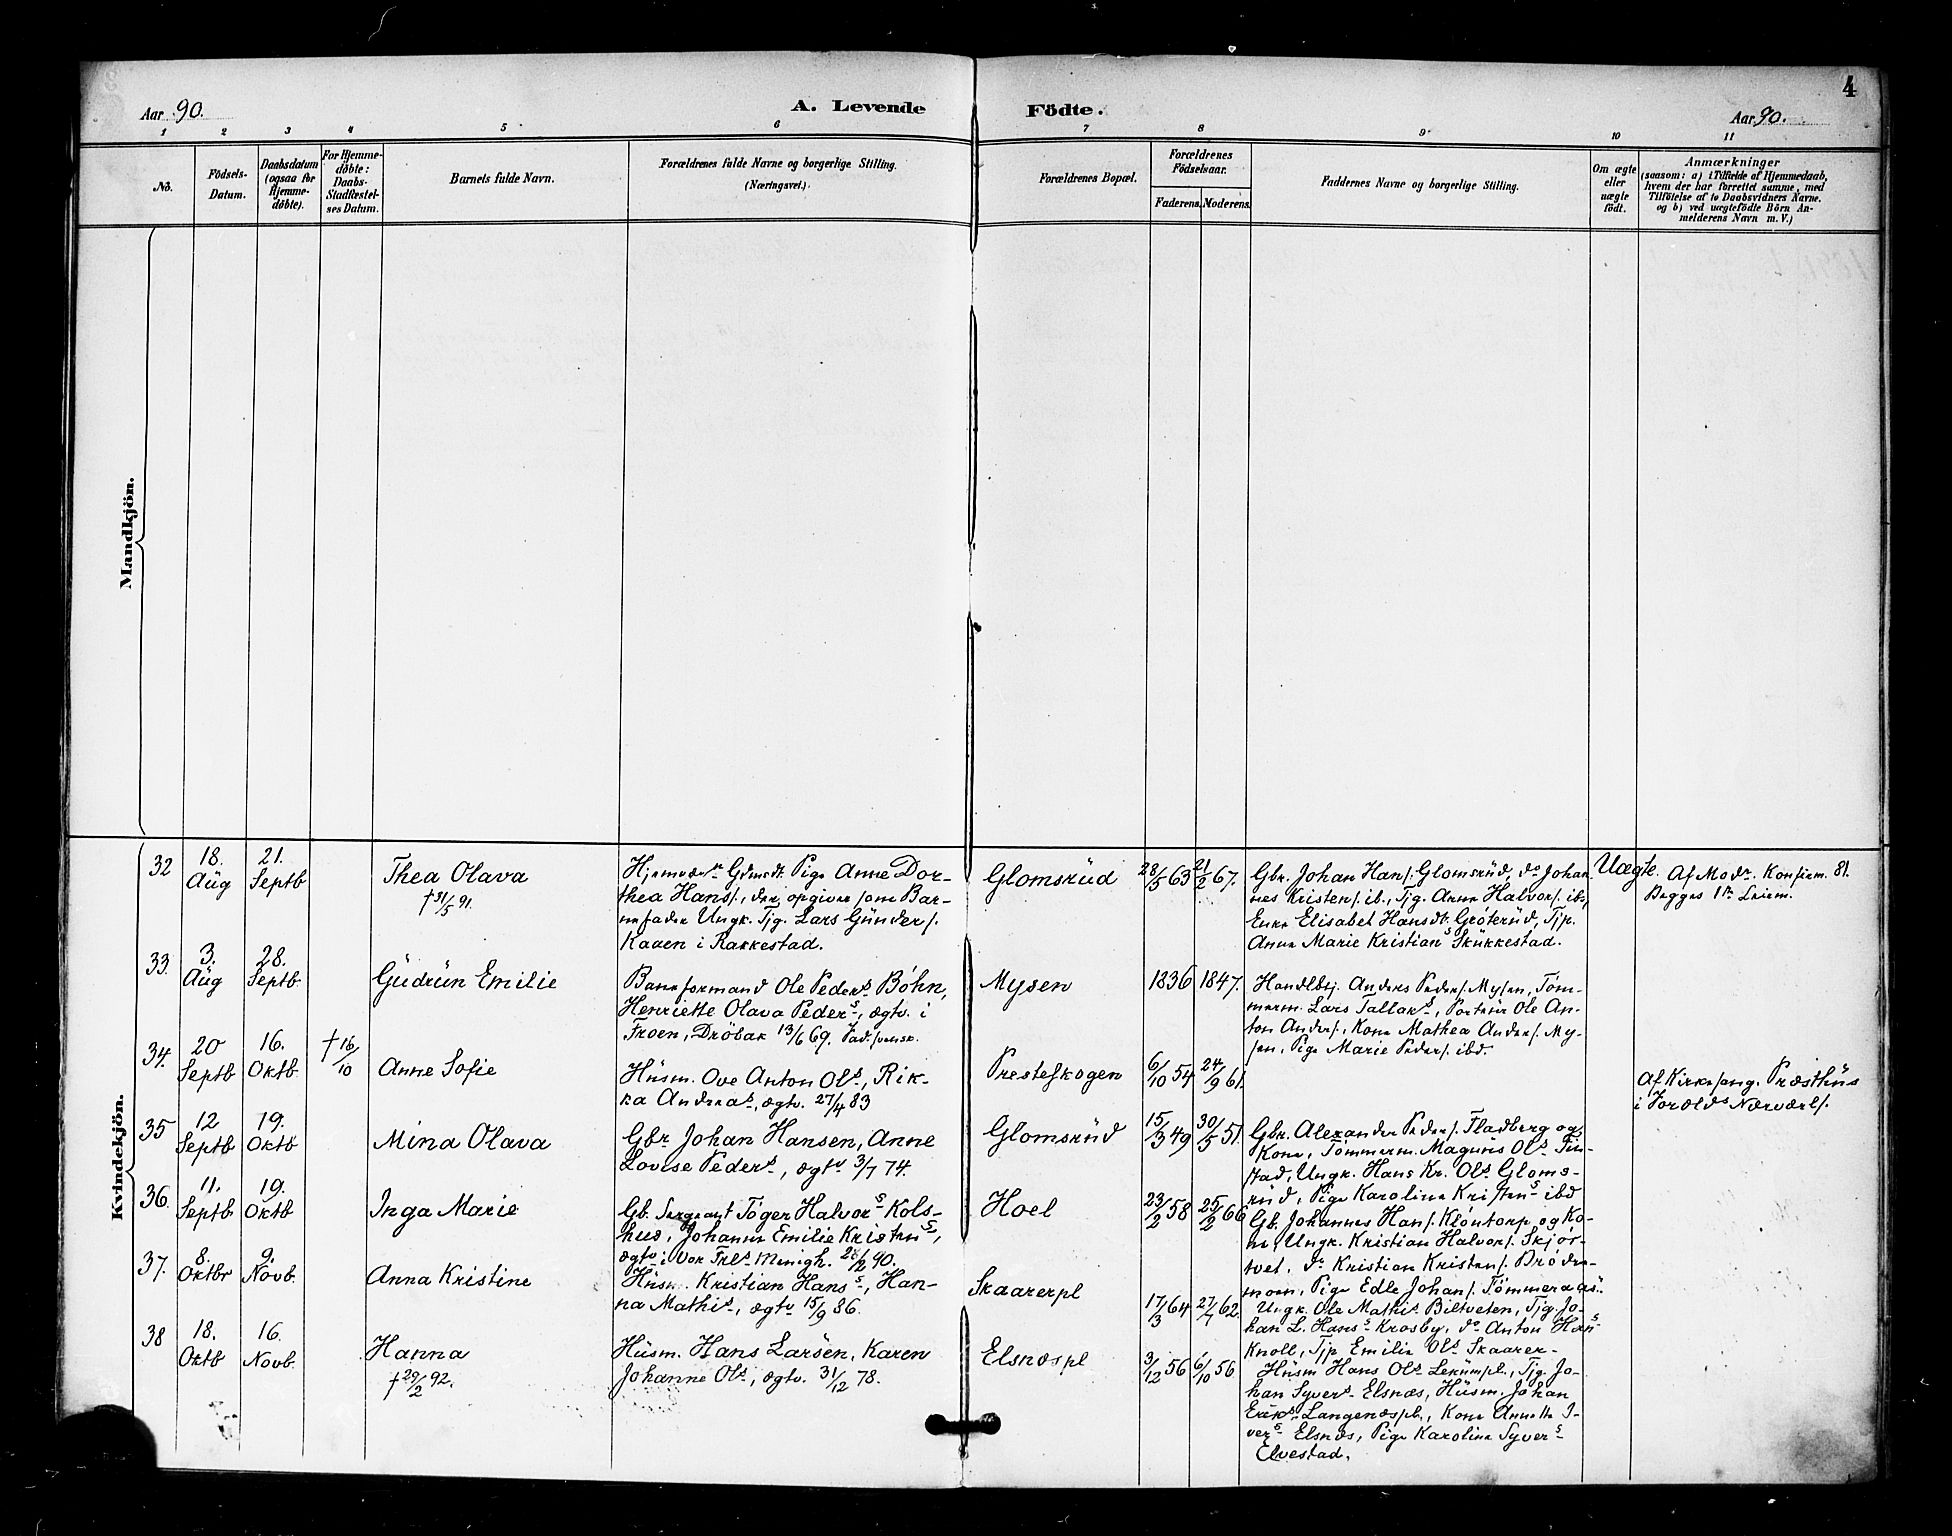 4
Aar 90.
A. Levende Födte.
Aar 90.
1 2 3 4 5 6 7 8 9 10 11
No.
Födsels-
Datum.
Daabsdatum
(ogsaa for
Hjemme-
döbte).
For Hjemme-
döbte:
Daabs-
Stadfestel-
ses Datum.
Barnets fulde Navn.
Forældrenes fulde Navne og borgerlige Stilling.
(Næringsvei.)
Forældrenes Bopæl.
Forældrenes
Födselsaar.
Faderens. Moderens.
Faddernes Navne og borgerlige Stilling.
Om ægte
eller
uægte
født.
Anmærkninger
(saasom: a) i Tilfælde af Hjemmedaab,
hvem der har forrettet samme, med
Tilföielse af to Daabsvidners Navne.
og b) ved uægtefödte Börn An-
melderens Navn m. V.)
Mandkjön.
Kvindekjön.
32
18.
Aüg
21.
Septb
Thea Olava
† 31/5 91.
Pige Anne Dor-
thea Hans/., der opgiver som Bar-
nefader Ungk. Tjg. Lars Günder/.
Kaaen i Rakkestad.
Glomsrüd
28/5 63
21/2 67.
Gbr. Johan Han/. Glomsrüd, do Johan-
nes Kristen/. ib., Tjg. Anne Halvor/. ib.,
Enke Elisabet Hansdt. Gröterüd, Tjp.
Anne Marie Kristians Skükkestad.
Uægte.
Af Modr. Konfirm. 81.
Begges 1ste Leierm.
33.
3.
Aüg
28.
Septb.
Güdrün Emilie
Baneformand Ole Peders Böhn,
Henriette Olava Peders, ægtv. i
Froen, Dröbak 13/6 69.
Mysen
1836
1847.
Handlbj. Anders Peder/. Mysen, Töm-
merm. Lars Tallaks, Portür Ole An-
ton Ander/., Kone Mathea Ander/. My-
sen, Pige Marie Peder/. ibd.
34.
20
Septb
16.
Oktb.
† 16/10
Anne Sofie
Hüsm. Ove Anton Ols, Rik-
ka Andreas, ægtv. 27/4 83
Presteskogen
6/10 54
24/9 61.
Af Kirkesang. Præsthüs
i
35
12
Septb
19.
Oktb
Mina Olava
Gbr. Johan Hansen, Anne
Lovise Peders, ægtv 3/7 74.
Glomsrüd
15/3 49
30/5 51.
Gbr. Alexander Peder/. Fladberg og
Kone, Tömmerm. Magnüs Ols Fin-
stad, Ungk. Hans Kr. Ols Gloms-
rüd, Pige Karoline Kristens ibd
36.
11.
Septb
19.
Oktb
Inga Marie
Gb. Sergeant Töger Halvors Kols-
hus, Johanne Emilie Kristens,
ægtv. i Vor Frls Menigh. 28/2 90.
Hoel
23/2 58
25/2 66
Gb. Johannes Han/. Klöntorp og Ko-
ne, Ungk. Kristian Halvor/. Skjör-
tvet, do Kristian Kristen/. Bröder-
moen, Pige Edle Johan/. Tömmeraas.
37.
8.
Oktbr
9.
Novb.
Anna Kristine
Hüsm. Kristian Hans, Han-
na Mathis, ægtv. 15/9 86.
Skaarerpl
17/3 64
27/7 62.
Ungk. Ole Mathis Biltveten, Tjg. Jo-
han L. Hans Krosby, do Anton Hans
Knoll, Tjp. Emilie Ols Skaarer.
38
18.
Oktb
16.
Novb.
Hanna
† 29/2 92.
Hüsm. Hans Larsen, Karen
Johanne Ols, ægtv. 31/12 78.
Elsnæspl
3/12 56
6/10 56
Hüsm Hans Ols Leküm pl., Tjg. Jo-
han Syvers Elsnæs, Hüsm. Johan
Eriks Langenæspl., Kone Annette I-
vers Elsnæs, Pige Karoline Syvers
Elvestad.